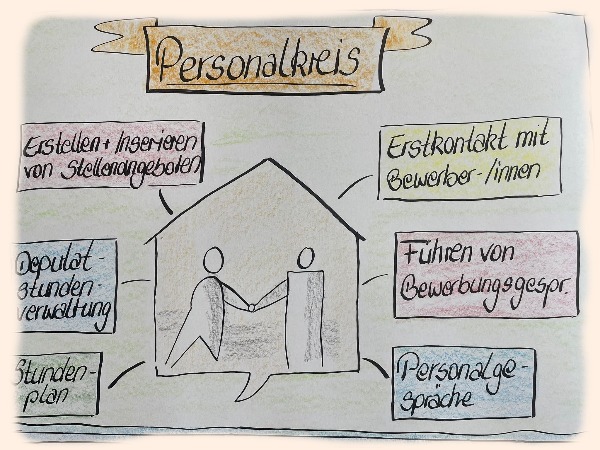 Personalkreis
Erstellen + Inserieren
von Stellenangeboten
Erstkontakt mit
Bewerber-/innen
Deputat-
stunden-
verwaltung
Führen von
Bewerbungsgespr.
Stunden-
plan
Personalge-
spräche